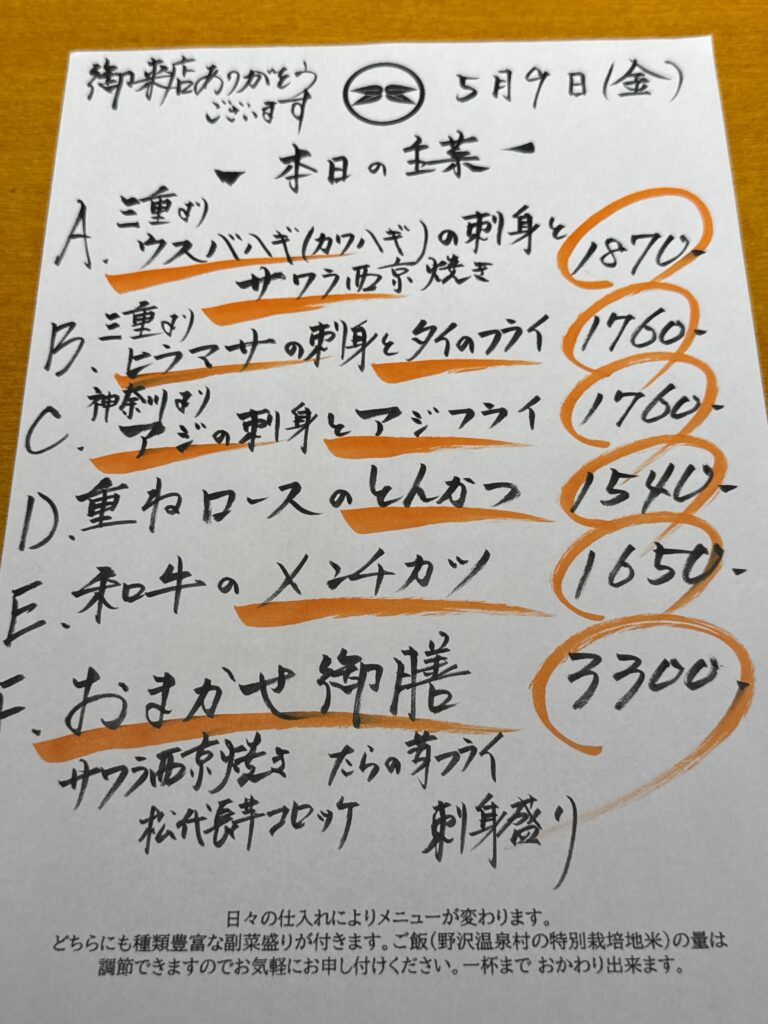 御来店ありがとう
ございます
5月9日(金)
本日の主菜
A. 三重より
ウスバハギ(カワハギ)の刺身と
サワラ西京焼き
1870-
B. 三重より
ヒラマサの刺身とタイのフライ
1760-
C. 神奈川より
アジの刺身とアジフライ
1760-
D. 重ねロースのとんかつ
1540-
E. 和牛のメンチカツ
1650-
F. おまかせ御膳
3300-
サワラ西京焼き たらの芽フライ
松代長芋コロッケ 刺身盛り
日々の仕入れによりメニューが変わります。
どちらにも種類豊富な副菜盛りが付きます。ご飯(野沢温泉村の特別栽培地米)の量は
調節できますのでお気軽にお申し付けください。一杯まで おかわり出来ます。